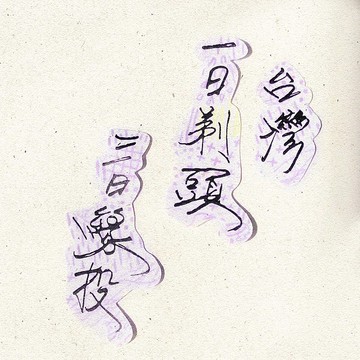 台灣
一日剃頭
三日無投